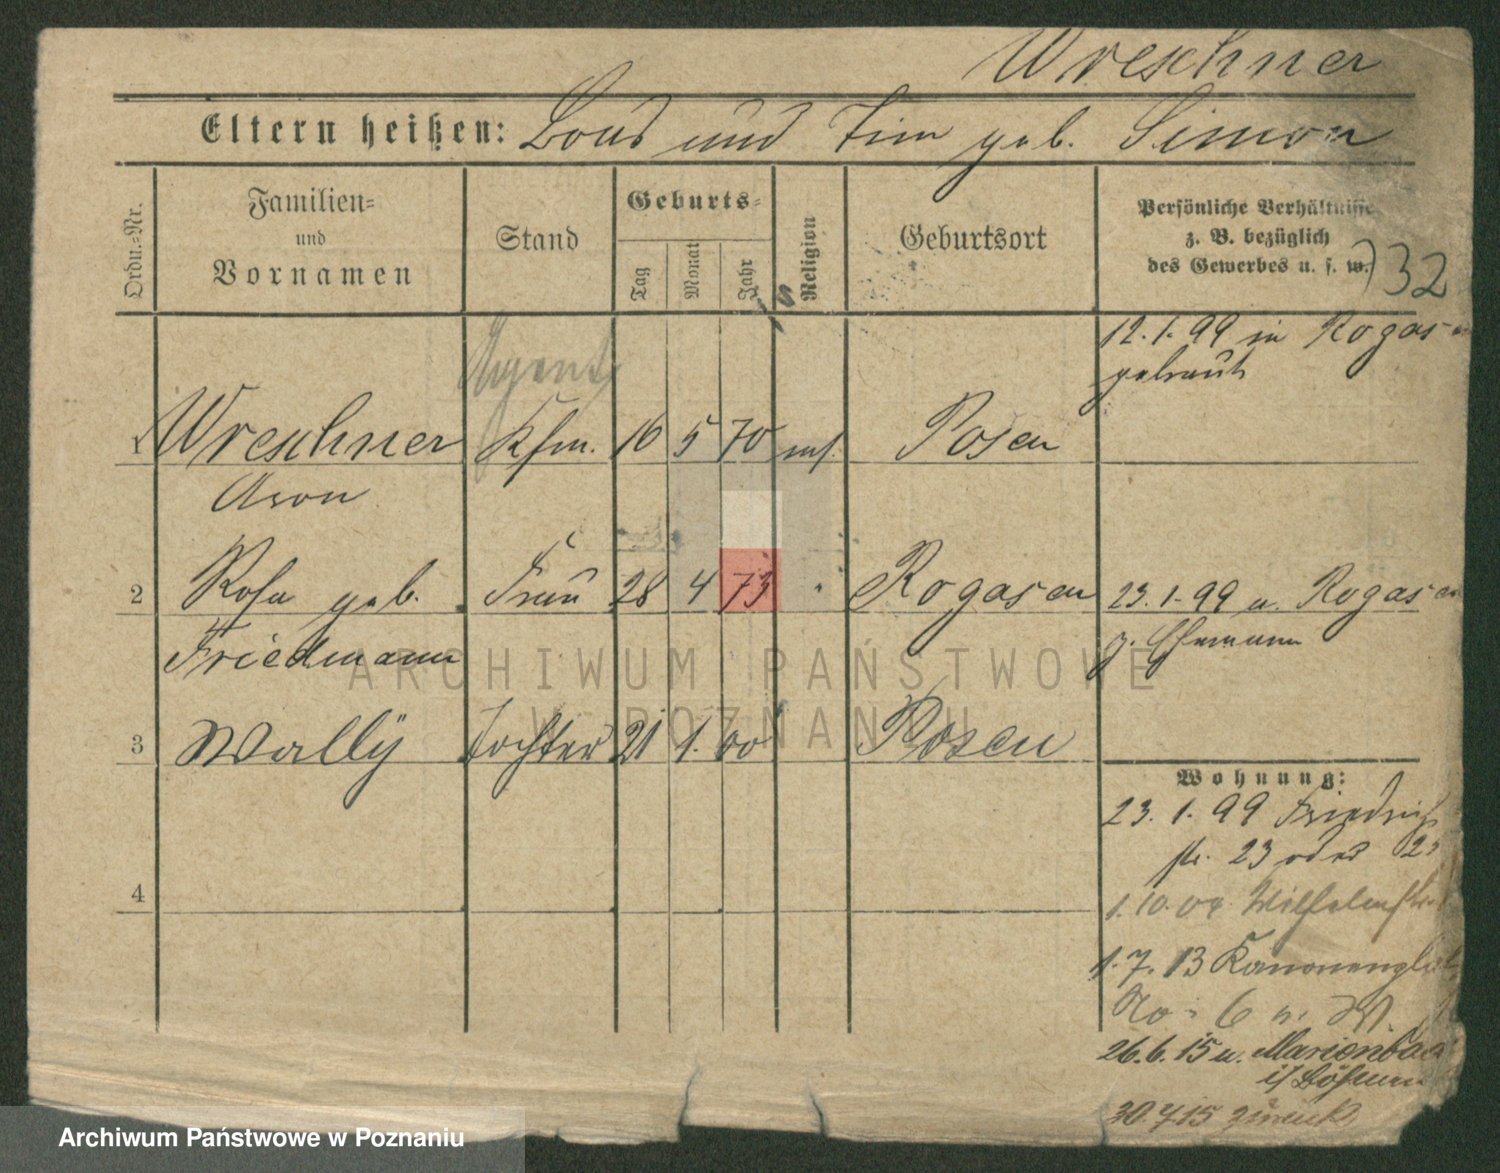 Wreschner
Eltern heißen: Louis und Fim geb. Simon
Ordn.-Nr.
Familien-
und
Vornamen
Stand
Geburts-
Tag
Monat
Jahr
Religion
Geburtsort
Persönliche Verhältnisse
z. B. bezüglich
des Gewerbes u. s. w.
732
12.1.99 in Rogasen
getraut
Agent
1 Wreschner Kfm. 16 5 70 mos. Posen
Aron
2 Rosa geb. Frau 28 4 73 " Rogasen 23.1.99 v. Rogasen
Friedmann z. Ehemann
3 Wally Tochter 21 1. 00 Posen
Wohnung:
23. 1. 99 Friedrich
str. 23 oder 25
4
1. 10. 04 Wilhelmstr.
1. 7. 13 Kanonenpl
No. 6
26.6.15 n. Marienbad
i/ Böhmen
30.7.15 zurück
ARCHIWUM PAŃSTWOWE
W POZNANIU
Archiwum Państwowe w Poznaniu